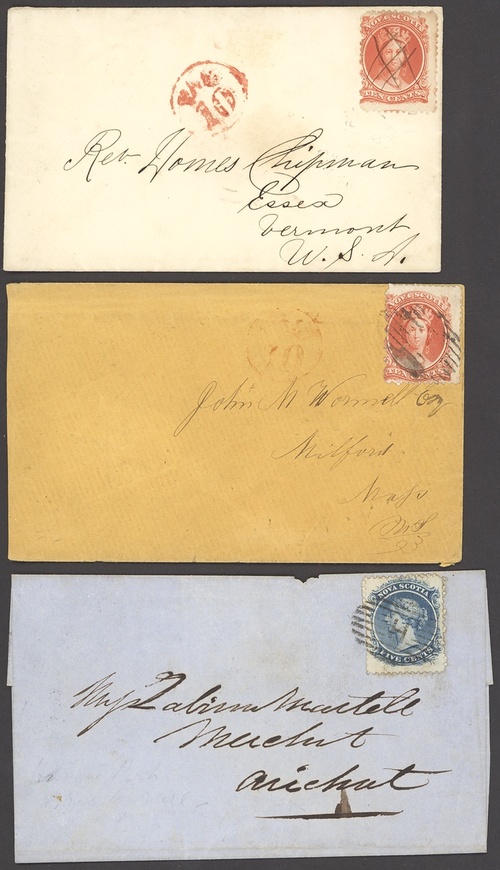 NOVA SCOTIA
TEN CENTS
PAID
10
Rev. Homes Chipman
Essex
Vermont
U. S. A.
NOVA SCOTIA
TEN CENTS
10
John M
Milford
Mass
NOVA SCOTIA
FIVE CENTS
Martell
Merchat
Arichat